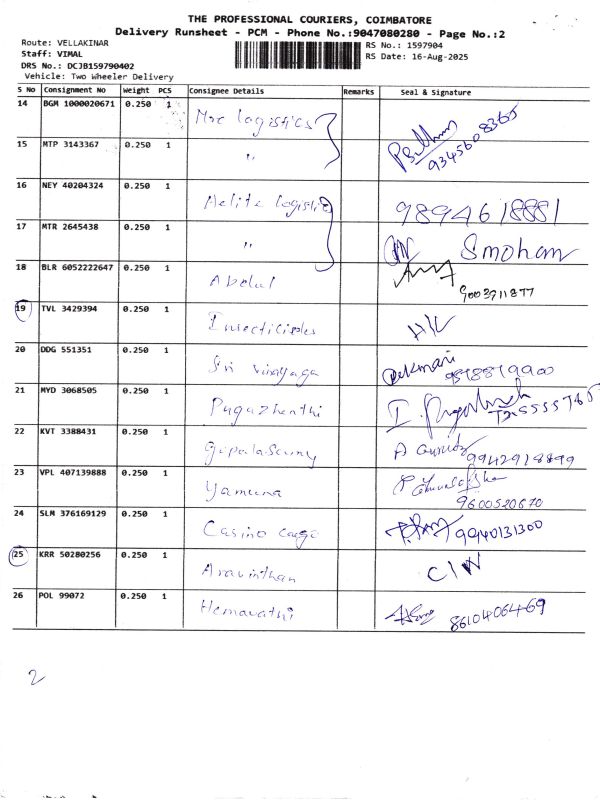 THE PROFESSIONAL COURIERS, COIMBATORE
Delivery Runsheet - PCM - Phone No.:9047080280 - Page No.:2
Route: VELLAKINAR
RS No.: 1597904
Staff: VIMAL
RS Date: 16-Aug-2025
DRS No.: DCJB159790402
Vehicle: Two Wheeler Delivery
S No Consignment No Weight PCS Consignee Details Remarks Seal & Signature
14 BGM 1000020671 0.250 1 Mrc logistics
15 MTP 3143367 0.250 1 " 9345608365
16 NEY 40204324 0.250 1 Aelite logistic 9894618881
17 MTR 2645438 0.250 1 " Smohan
18 BLR 6052222647 0.250 1 Abdul 9003911877
19 TVL 3429394 0.250 1 Insecticides H/L
20 DDG 551351 0.250 1 Sri Vinayaga
21 MYD 3068505 0.250 1 Pugazhenthi
22 KVT 3388431 0.250 1 Gopalasamy
23 VPL 407139888 0.250 1 Yamuna 9600520670
24 SLM 376169129 0.250 1 Casino cargo 9940131300
25 KRR 50280256 0.250 1 Aravinthan
26 POL 99072 0.250 1 Hemavathi 8610406469
2